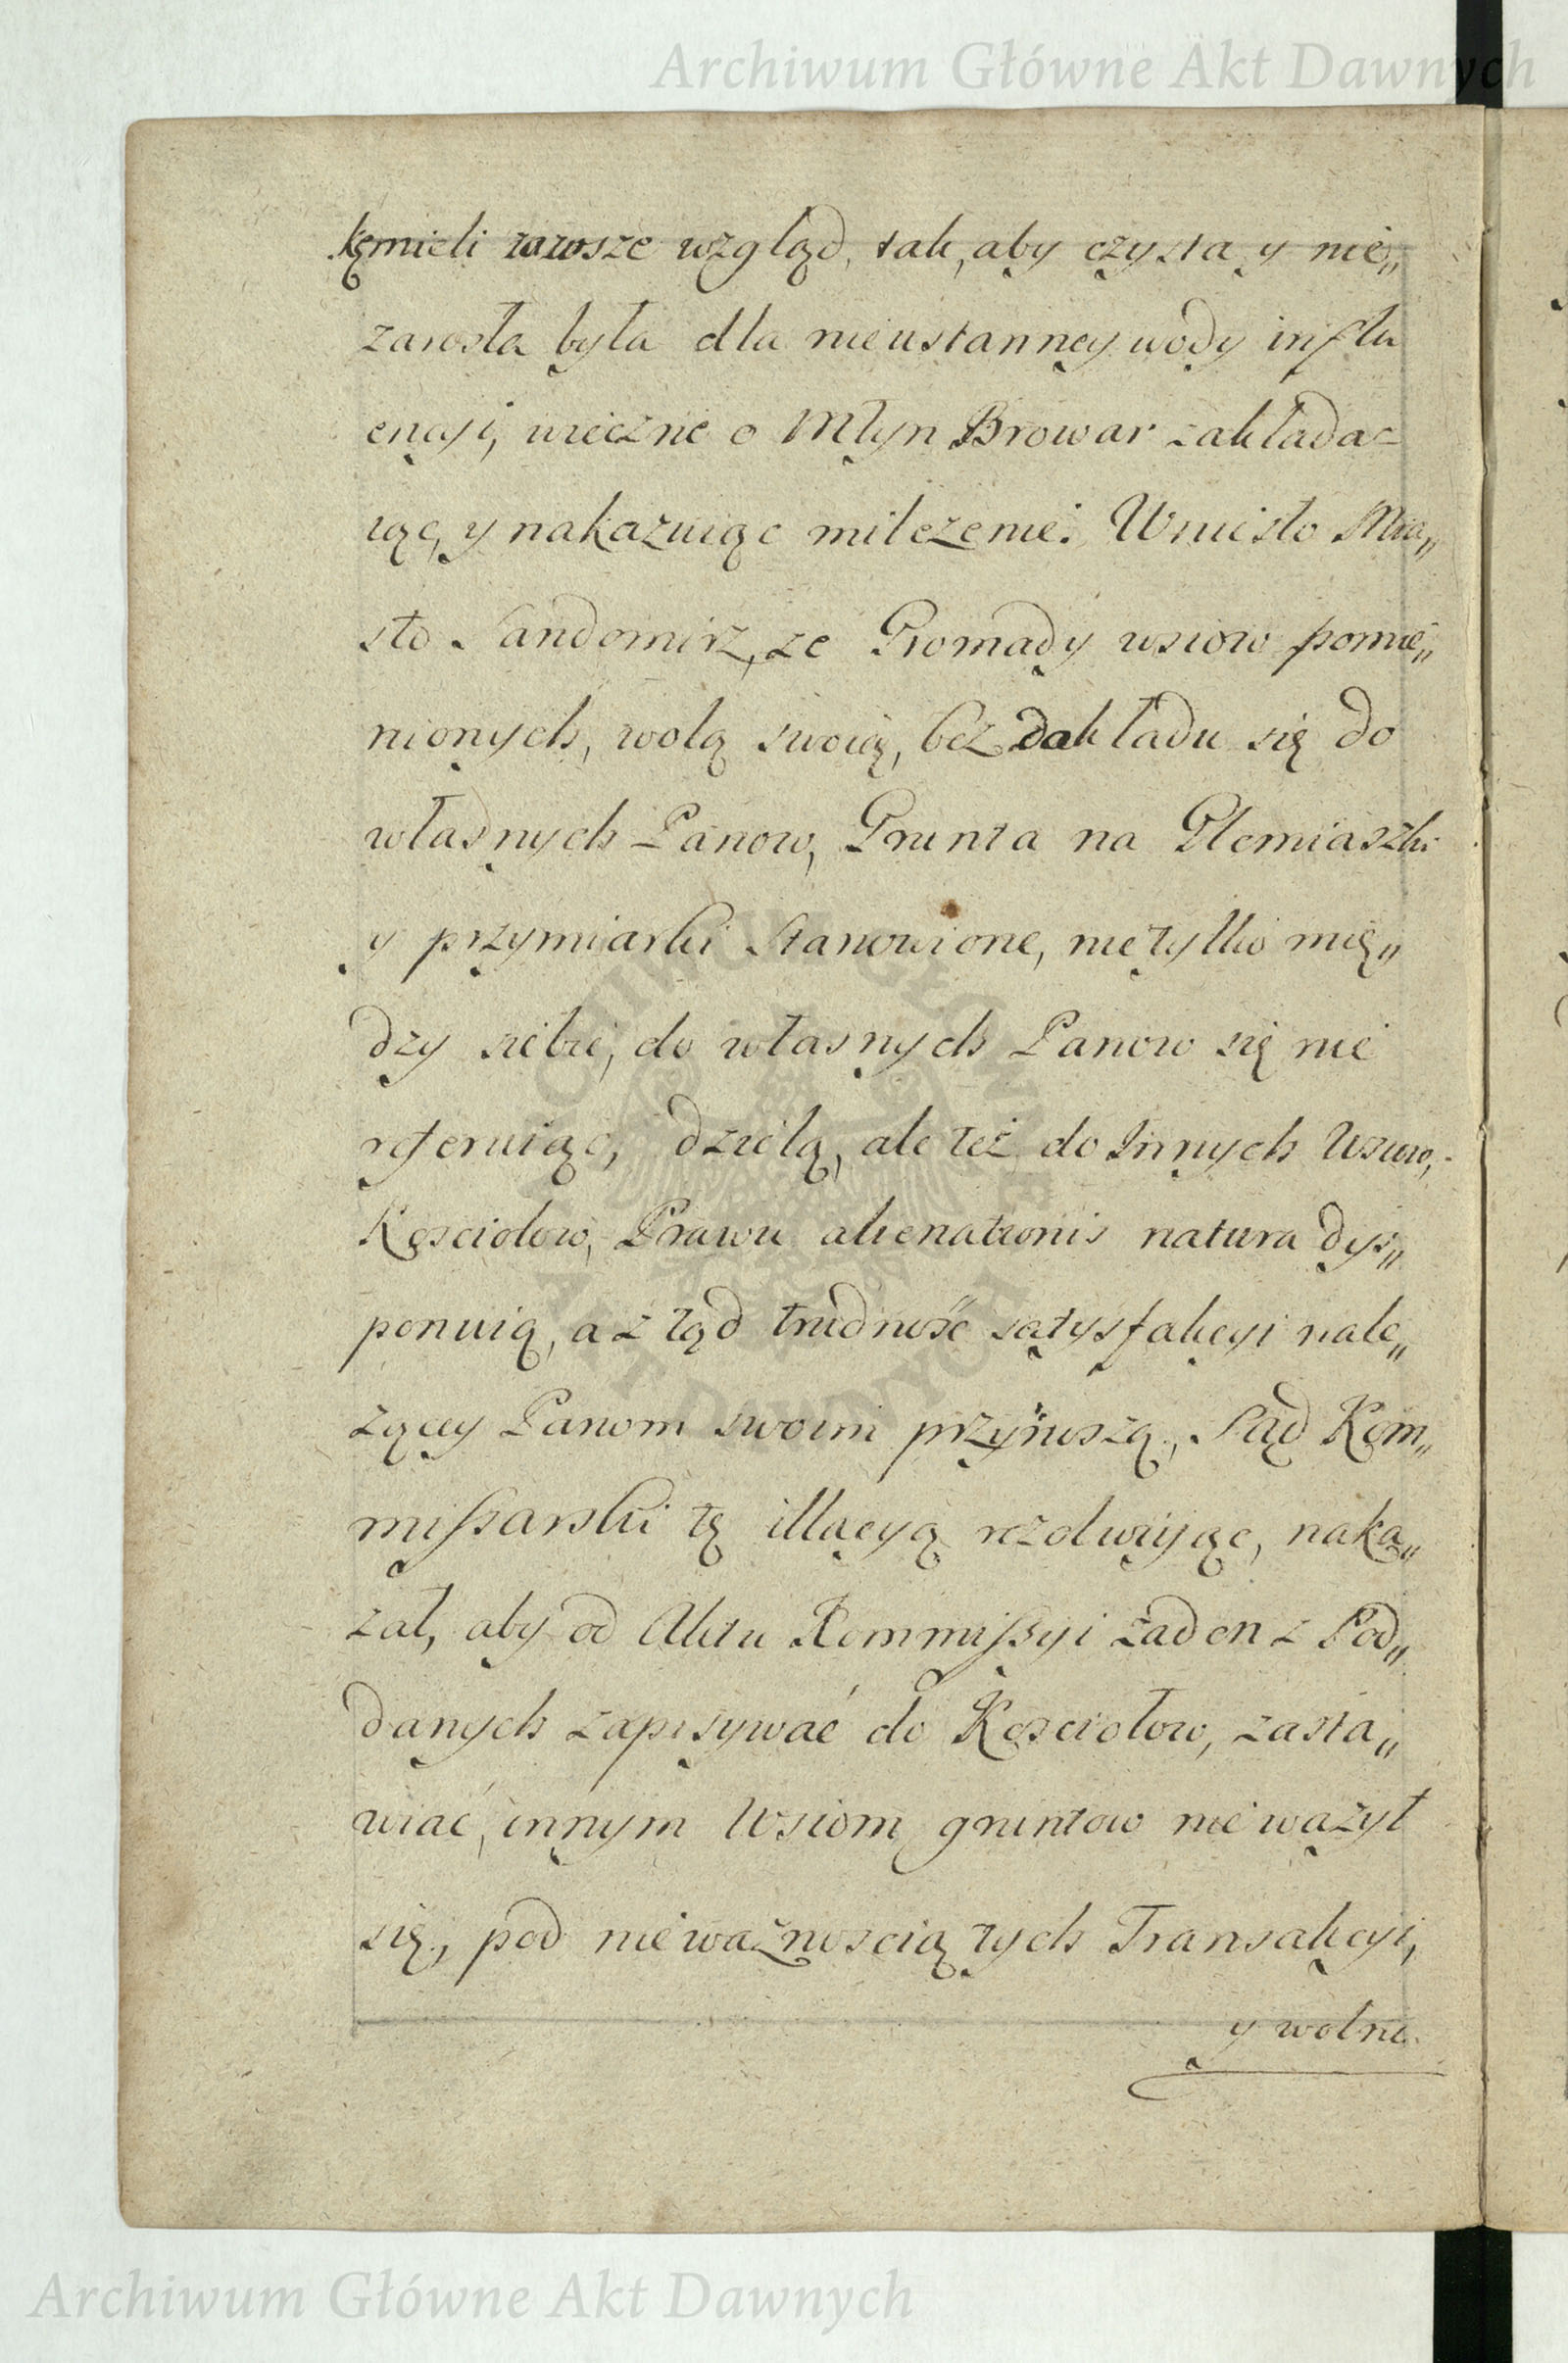 Archiwum Główne Akt Dawnych
kę mieli zawsze wzgląd, tak, aby czysta y nie„
zarosła była dla nieustanney wody influ
encyi, wieczne o Młyn Browar zakłada=
iąc, y nakazuiąc milczenie. Wniesło Mia„
sto Sandomirz, ze Gromady wsiow pomie„
nionych, wolą swoią, bez dokładu się do
własnych Panow, Grunta na Plemiaszki
y przymiarki Stanowione, nie tylko mię„
dzy siebie, do własnych Panow się nie
referuiąc, dzielą, ale też do Innych Wsiow,
Kosciolow, Prawu alienationis natura dys„
ponuią, a z tąd trudność satysfakcyi nale„
zącey Panom swoim przynoszą, Sąd Kom„
missarski tę illacyą rezolwuiąc, naka„
zał, aby od Aktu Kommissyi żaden z Pod„
danych zapisywać do Kosciołow, zasta„
wiać, innym Wsiom gruntow nie ważył
się, pod nieważnoscią tych Transakcyi,
y wolne
ARCHIWUM GŁÓWNE AKT DAWNYCH
Archiwum Główne Akt Dawnych